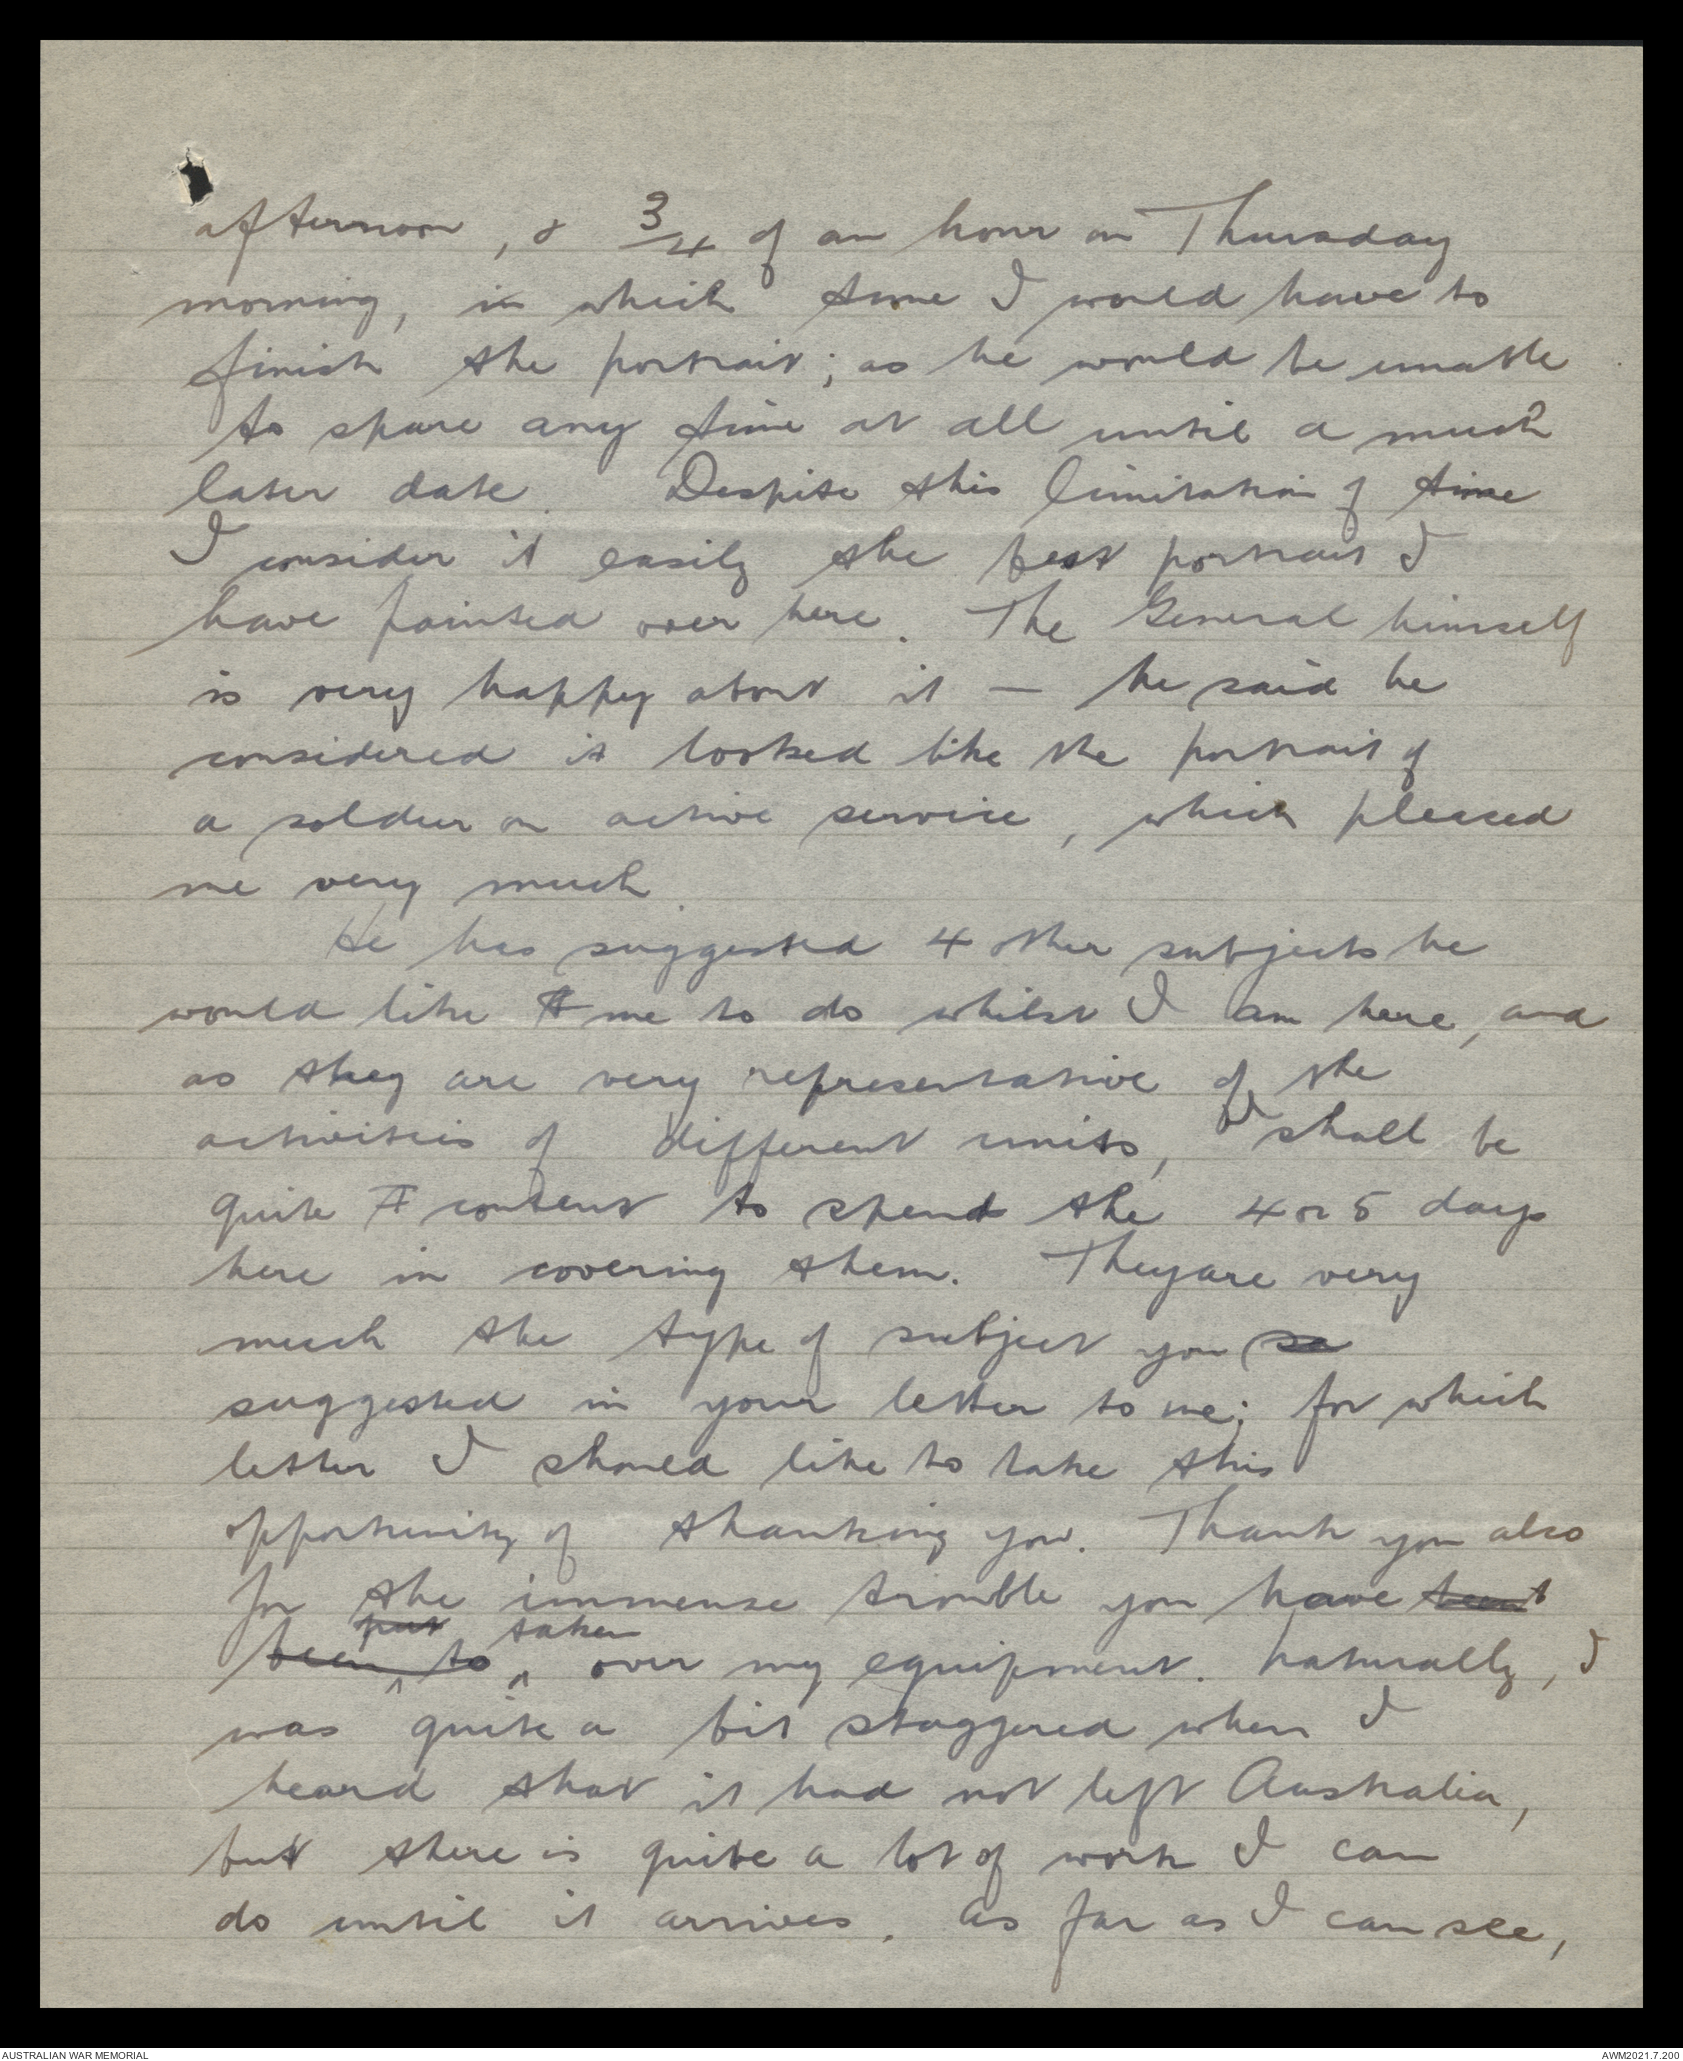 afternoon, & 3/4 of an hour on Thursday
morning, in which time I would have to
finish the portrait; as he would be unable
to spare any time at all until a much
later date. Despite this limitation of time
I consider it easily the best portrait I
have painted over here. The General himself
is very happy about it — he said he
considered it looked like the portrait of
a soldier on active service, which pleased
me very much.
He has suggested 4 other subjects he
would like me to do whilst I am here, and
as they are very representative of the
activities of different units, I shall be
quite content to spend the 4 or 5 days
here in covering them. They are very
much the type of subject you so
suggested in your letter to me; for which
letter I should like to take this
opportunity of thanking you. Thank you also
for the immense trouble you have been
put taken
been to over my equipment. Naturally, I
was quite a bit staggered when I
heard that it had not left Australia,
but there is quite a lot of work I can
do until it arrives. As far as I can see,
AUSTRALIAN WAR MEMORIAL
AWM2021.7.200